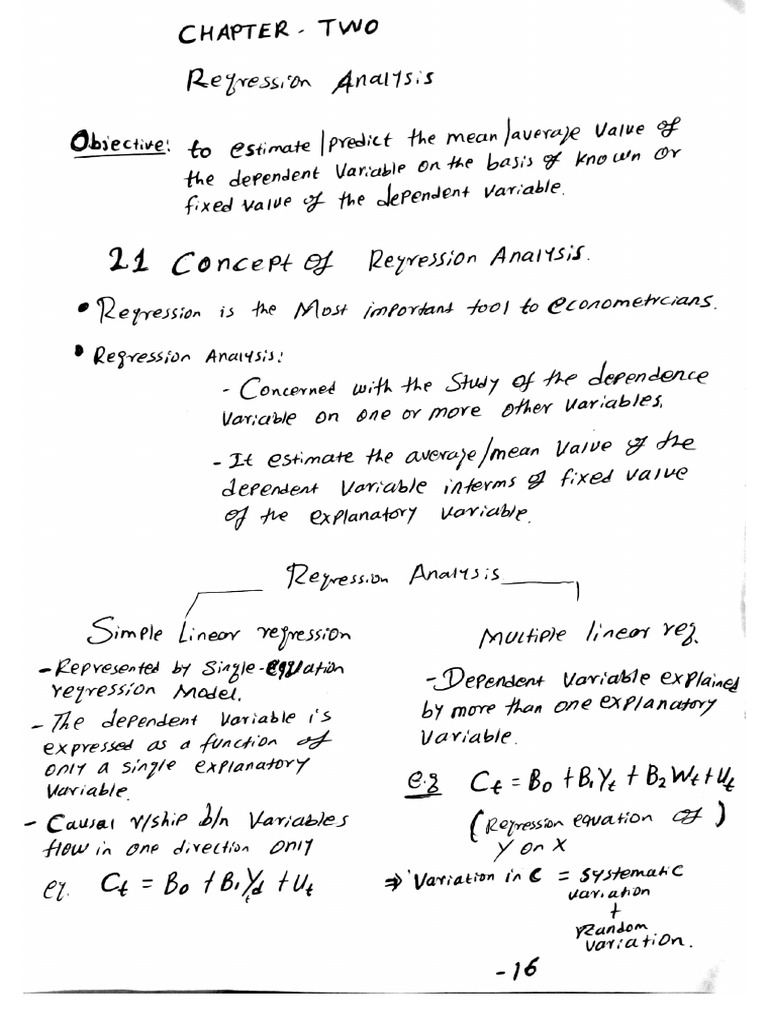 CHAPTER - TWO
Regression Analysis
Objective: to estimate/predict the mean/average value of
the dependent variable on the basis of known or
fixed value of the dependent variable.
2.1 Concept of Regression Analysis.
• Regression is the Most important tool to econometrcians.
• Regression Analysis:
- Concerned with the study of the dependence
variable on one or more other variables.
- It estimate the average/mean value of the
dependent variable interms of fixed value
of the explanatory variable.
Regression Analysis
Simple Linear regression
- Represented by single-equation
regression Model.
- The dependent variable is
expressed as a function of
only a single explanatory
variable.
- Causal r/ship b/n variables
flow in one direction only
eg. Ct = B0 + B1Yd + Ut
Multiple linear reg.
- Dependent variable explained
by more than one explanatory
variable.
e.g Ct = B0 + B1Yt + B2Wt + Ut
(Regression equation of)
Y on X
⇒ Variation in C = Systematic
variation
+
Random
variation.
-16